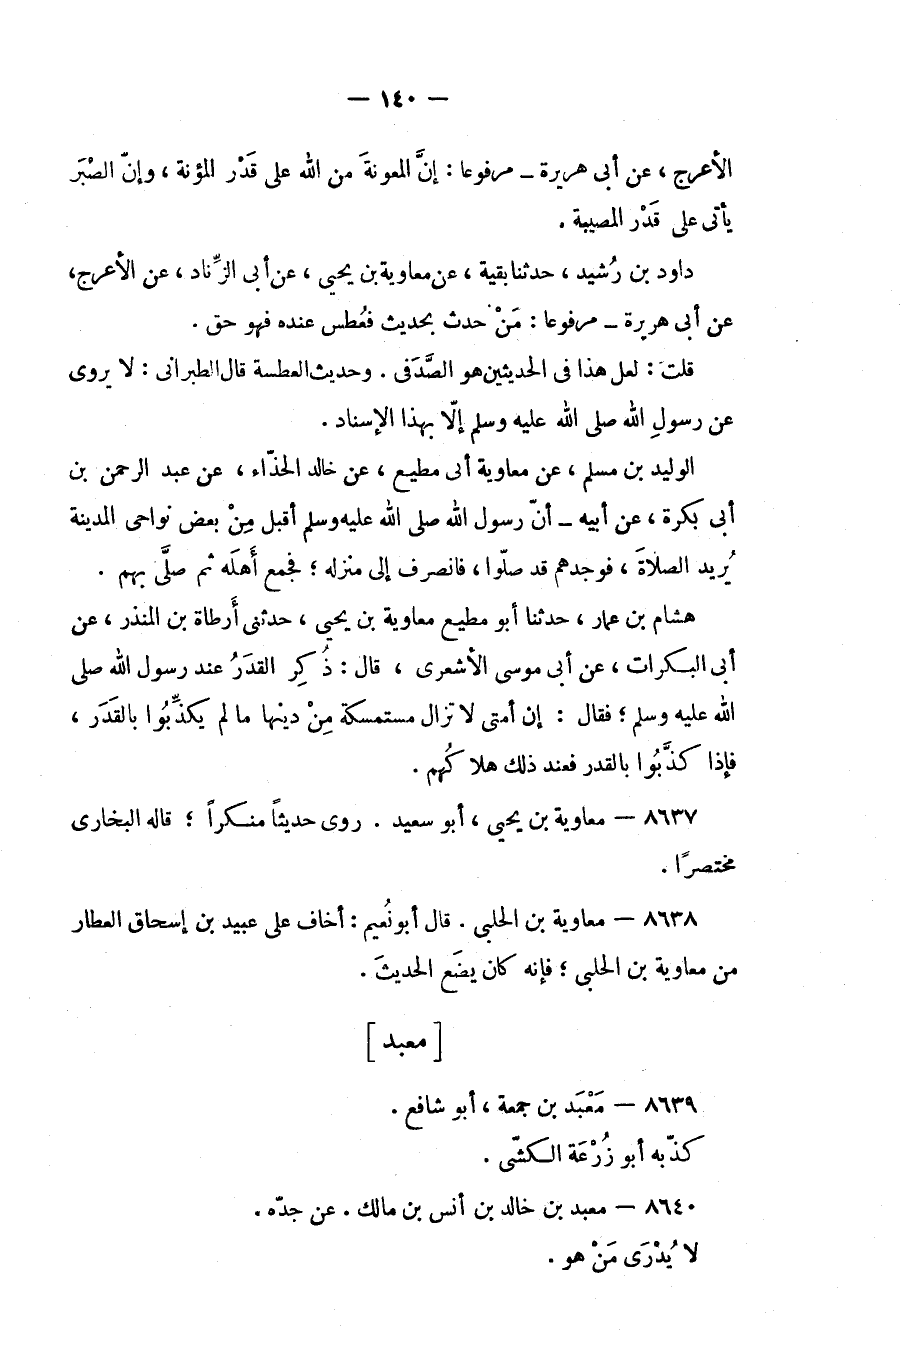 — ١٤٠ —
الأعرج ، عن أبى هريرة ــ مرفوعا : إنَّ المعونةَ من الله على قَدْر المؤنة ، وإنّ الصْبَر
يأتى على قَدْر المصيبة .
داود بن رُشيد ، حدثنا بقية ، عن معاوية بن يحيى ، عن أبى الزِّناد ، عن الأعرج،
عن أبى هريرة ــ مرفوعا : مَنْ حدث بحديث فعُطس عنده فهو حق .
قلت : لعل هذا فى الحديثين هو الصَّدَفى . وحديث العطسة قال الطبرانى : لا يروى
عن رسولِ الله صلى الله عليه وسلم إلّا بهذا الإسناد .
الوليد بن مسلم ، عن معاوية أبى مطيع ، عن خالد الحذّاء ، عن عبد الرحمن بن
أبى بكرة ، عن أبيه ــ أنّ رسول الله صلى الله عليه وسلم أقبل مِنْ بعض نواحى المدينة
يُريد الصلاةَ ، فوجدهم قد صلّوا ، فانصرف إلى منزله ؛ فجمع أَهلَه ثم صلَّى بهم .
هشام بن عمار ، حدثنا أبو مطيع معاوية بن يحيى ، حدثنى أَرطاة بن المنذر ، عن
أبى البكرات ، عن أبى موسى الأشعرى ، قال : ذُكِر القدَرُ عند رسول الله صلى
الله عليه وسلم ؛ فقال : إن أمتى لا تزال مستمسكة مِنْ دينها ما لم يكذِّبُوا بالقَدَر ،
فإذا كذَّبُوا بالقدر فعند ذلك هلاكُهم .
٨٦٣٧ — معاوية بن يحيى ، أبو سعيد . روى حديثاً منكراً ؛ قاله البخارى
مختصرًا .
٨٦٣٨ — معاوية بن الحلبى . قال أبو نُعيم : أخاف على عبيد بن إسحاق العطار
من معاوية بن الحلبى ؛ فإنه كان يضَع الحديثَ .
[ معبد ]
٨٦٣٩ — مَعْبَد بن جمعة ، أبو شافع .
كذّبه أبو زُرْعَة الكشّى .
٨٦٤٠ — معبد بن خالد بن أنس بن مالك . عن جدّه .
لا يُدْرَى مَنْ هو .